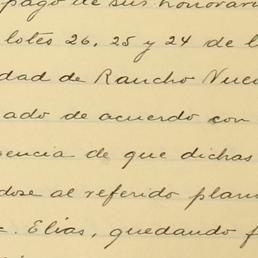 pago de sus honorari
lotes 26, 25 y 24 de l
dad de Rancho Nuev
ado de acuerdo con
encia de que dichas
dose al referido plan
. Elías, quedando f